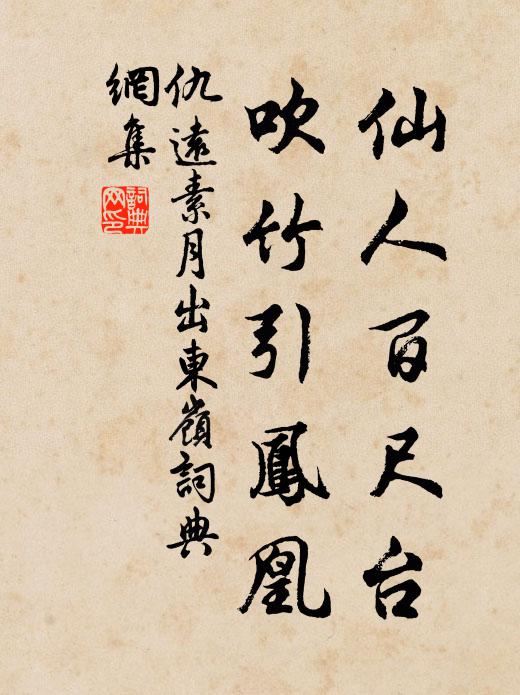 仙人百尺台
吹竹引鳳凰
仇遠素月出東嶺詞典
網集
詞典
网印